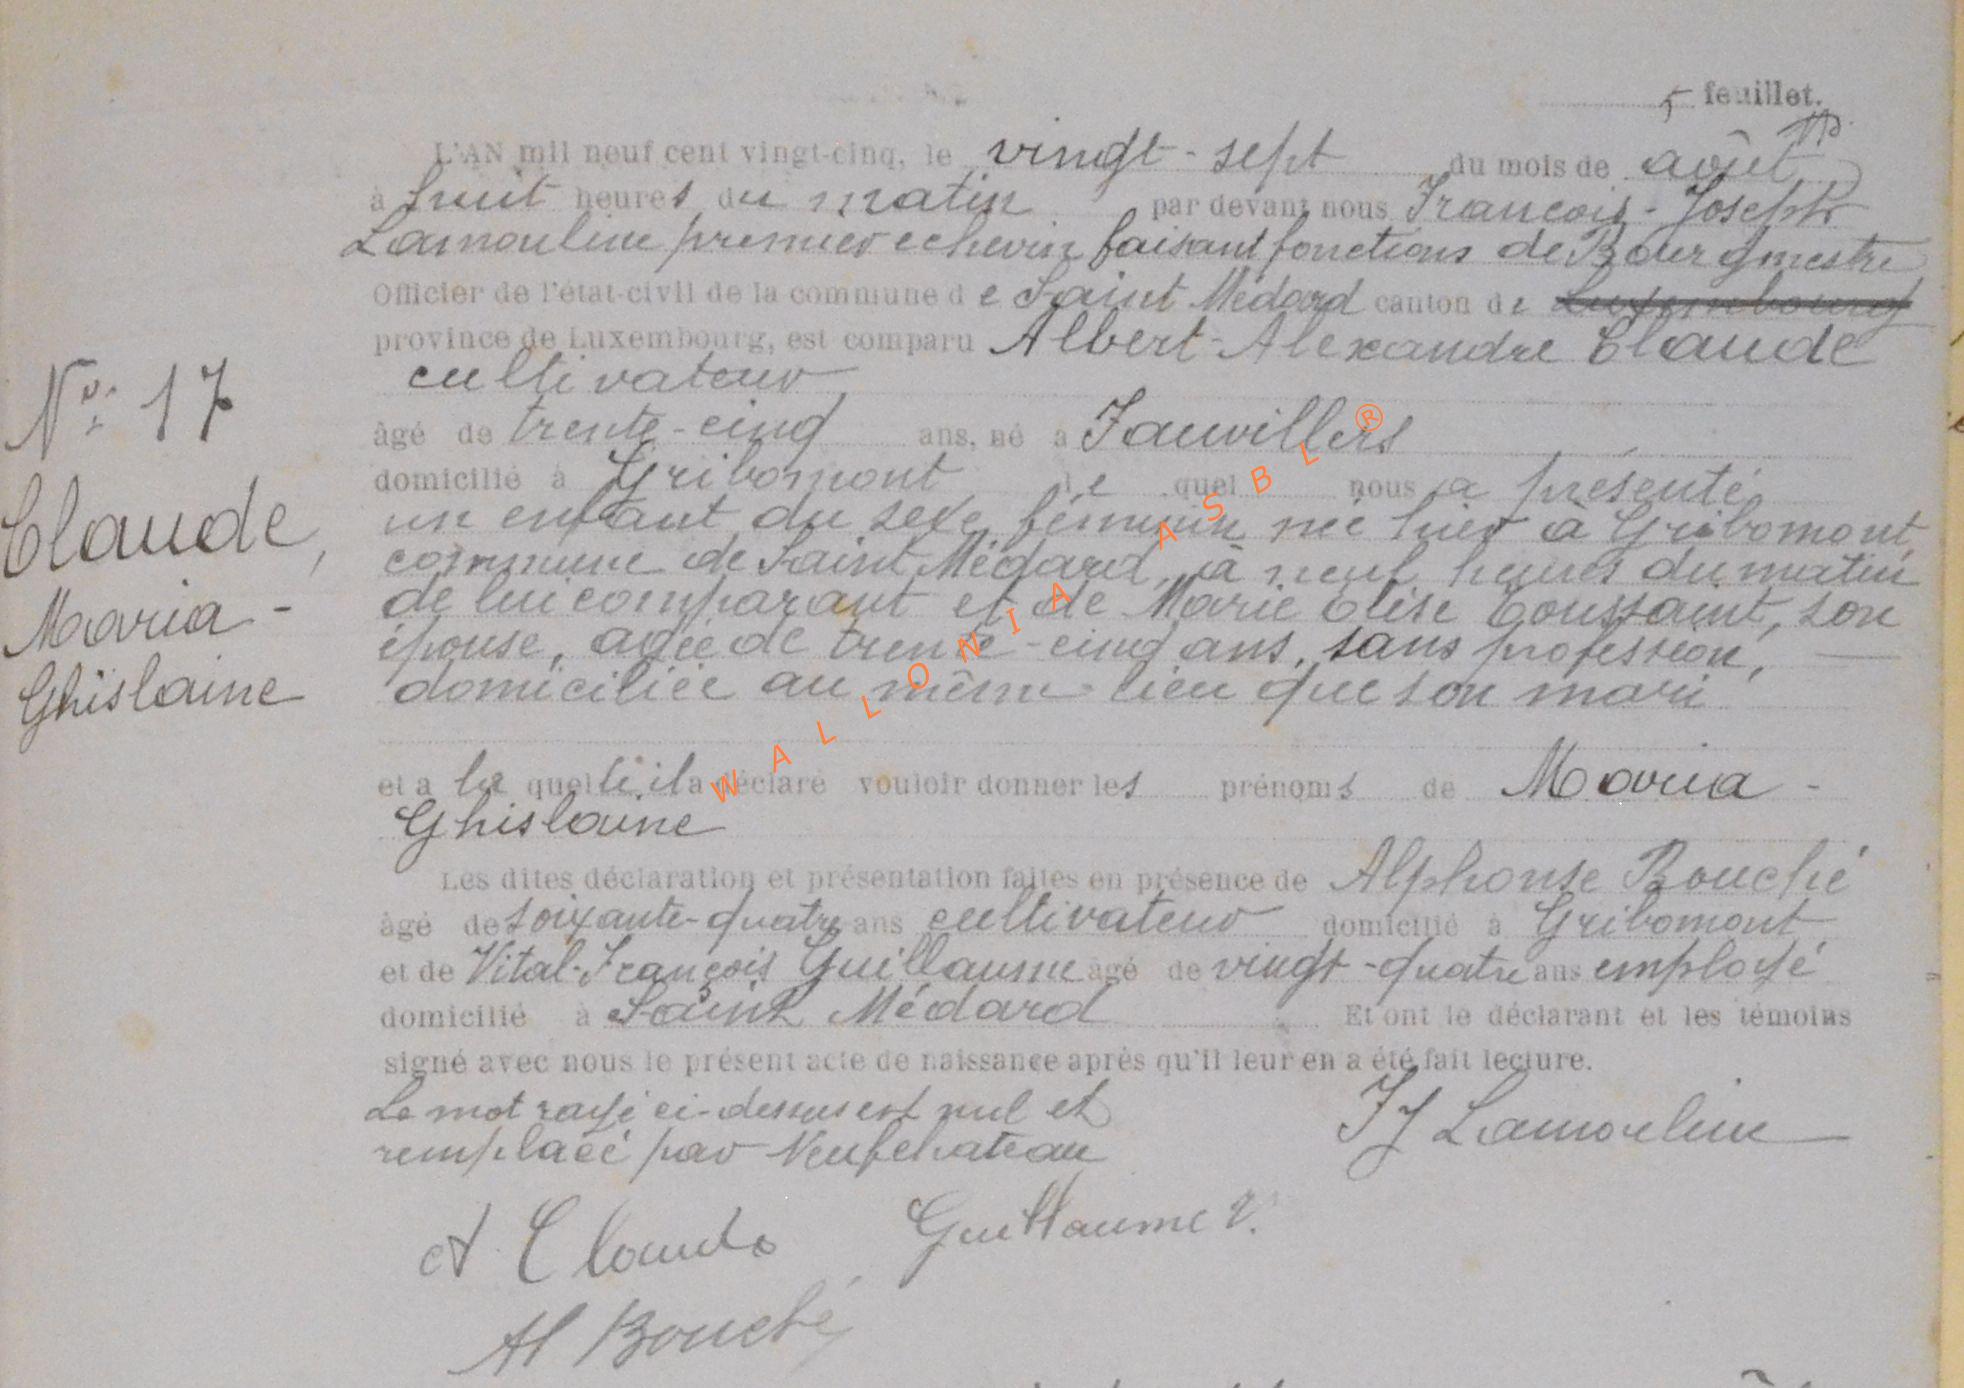 5 feuillet.
L'AN mil neuf cent vingt-cinq, le vingt-sept du mois de août
à huit heures du matin par devant nous François-Joseph
Lamouline premier echevin faisant fonctions de Bourgmestre
Officier de l'état-civil de la commune de Saint Médard canton de Luxembourg
province de Luxembourg, est comparu Albert-Alexandre Claude
cultivateur
N° 17
âgé de trente-cinq ans, né à Fauvillers
domicilié à Gribomont lequel nous a présenté
Claude,
un enfant du sexe féminin née hier à Gribomont,
commune de Saint Médard, à neuf heures du matin
Maria-
de lui comparant et de Marie Elise Toussaint, son
épouse, agée de trente-cinq ans, sans profession,
Ghislaine
domiciliée au même lieu que son mari
et a laquelle il a déclaré vouloir donner les prénoms de Maria-
Ghislaine
Les dites déclaration et présentation faites en présence de Alphonse Bouché
âgé de soixante-quatre ans cultivateur domicilié à Gribomont
et de Vital-François Guillaume âgé de vingt-quatre ans employé
domicilié à Saint Médard Et ont le déclarant et les témoins
signé avec nous le présent acte de naissance après qu'il leur en a été fait lecture.
Le mot rayé ci-dessus est nul et
remplacé par Neufchateau
FJ Lamouline
A Claude Guillaume V.
Al Bouché
WALLONIA ASBL®